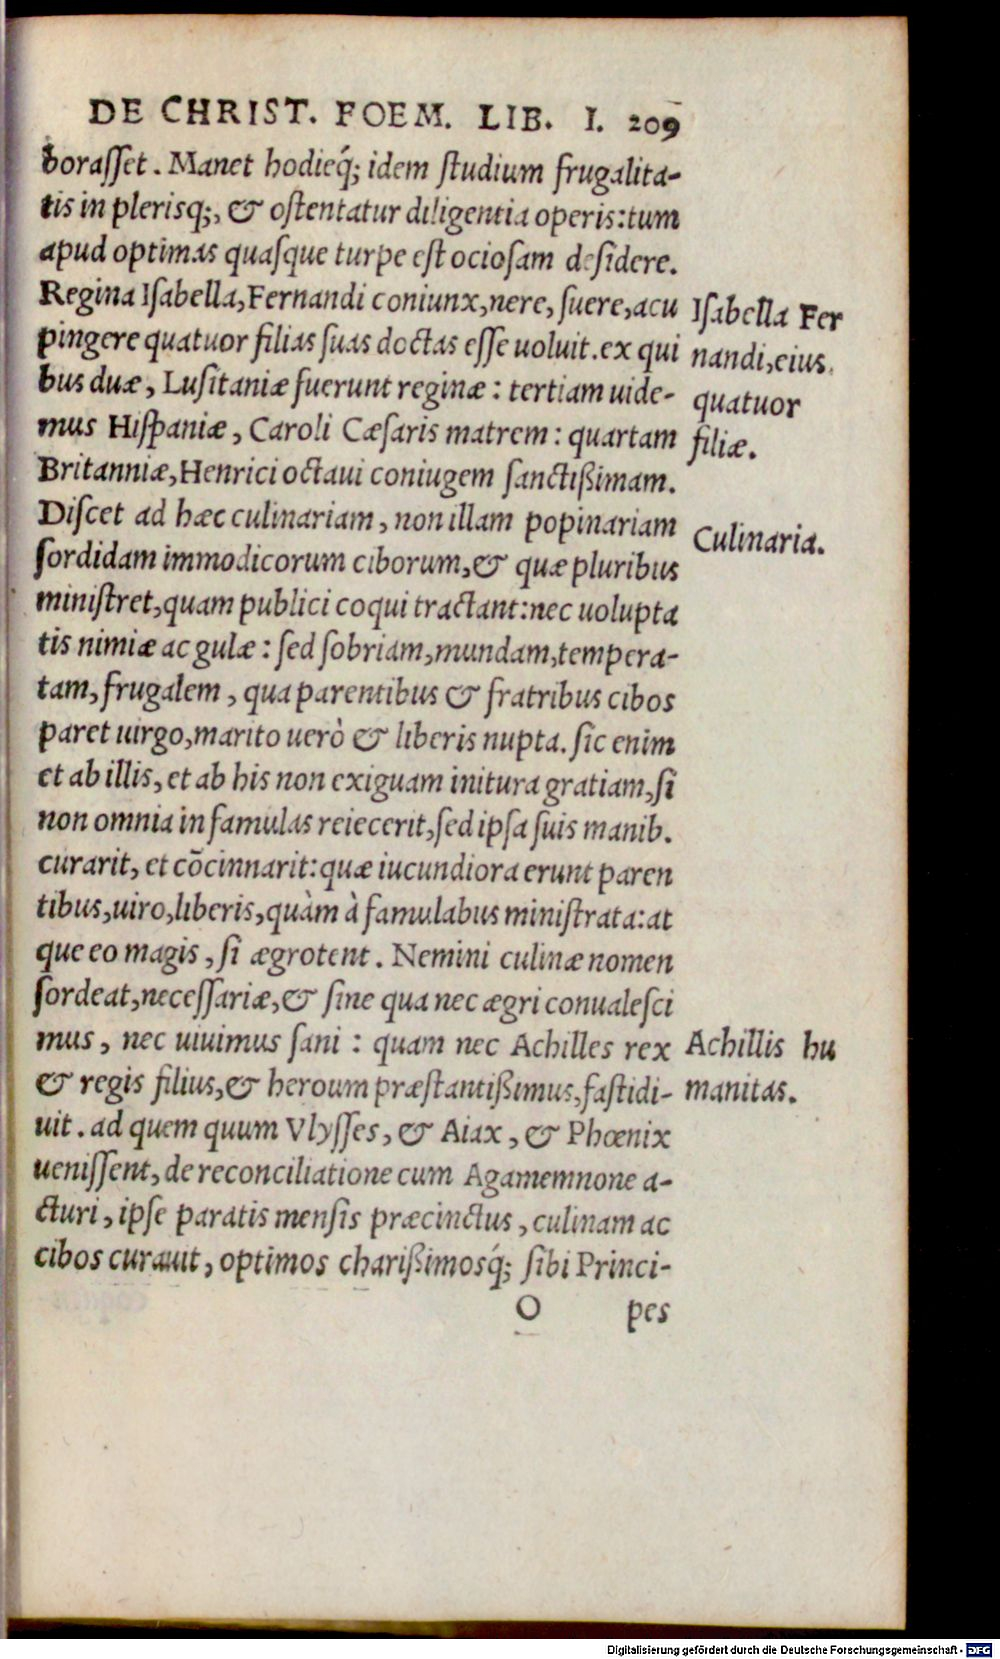 DE CHRIST. FOEM. LIB. I. 209
boraſſet. Manet hodieq́; idem ſtudium frugalita-
tis in plerisq;, & oſtentatur diligentia operis: tum
apud optimas quaſque turpe eſt ocioſam deſidere.
Regina Iſabella, Fernandi coniunx, nere, ſuere, acu
pingere quatuor filias ſuas doctas eſſe uoluit. ex qui
bus duæ, Luſitaniæ fuerunt reginæ: tertiam uide-
mus Hiſpaniæ, Caroli Cæſaris matrem: quartam
Britanniæ, Henrici octaui coniugem ſanctißimam.
Diſcet ad hæc culinariam, non illam popinariam
ſordidam immodicorum ciborum, & quæ pluribus
miniſtret, quam publici coqui tractant: nec uolupta
tis nimiæ ac gulæ: ſed ſobriam, mundam, tempera-
tam, frugalem, qua parentibus & fratribus cibos
paret uirgo, marito uerò & liberis nupta. ſic enim
et ab illis, et ab his non exiguam initura gratiam, ſi
non omnia in famulas reiecerit, ſed ipſa ſuis manib.
curarit, et cōcinnarit: quæ iucundiora erunt paren
tibus, uiro, liberis, quàm à famulabus miniſtrata: at
que eo magis, ſi ægrotent. Nemini culinæ nomen
ſordeat, neceſſariæ, & ſine qua nec ægri conualeſci
mus, nec uiuimus ſani: quam nec Achilles rex
& regis filius, & heroum præſtantißimus, faſtidi-
uit. ad quem quum Vlyſſes, & Aiax, & Phœnix
ueniſſent, de reconciliatione cum Agamemnone a-
cturi, ipſe paratis menſis præcinctus, culinam ac
cibos curauit, optimos charißimosq́; ſibi Princi-
O pes
Iſabella Fer
nandi, eius
quatuor
filiæ.
Culinaria.
Achillis hu
manitas.
Digitalisierung gefördert durch die Deutsche Forschungsgemeinschaft - DFG